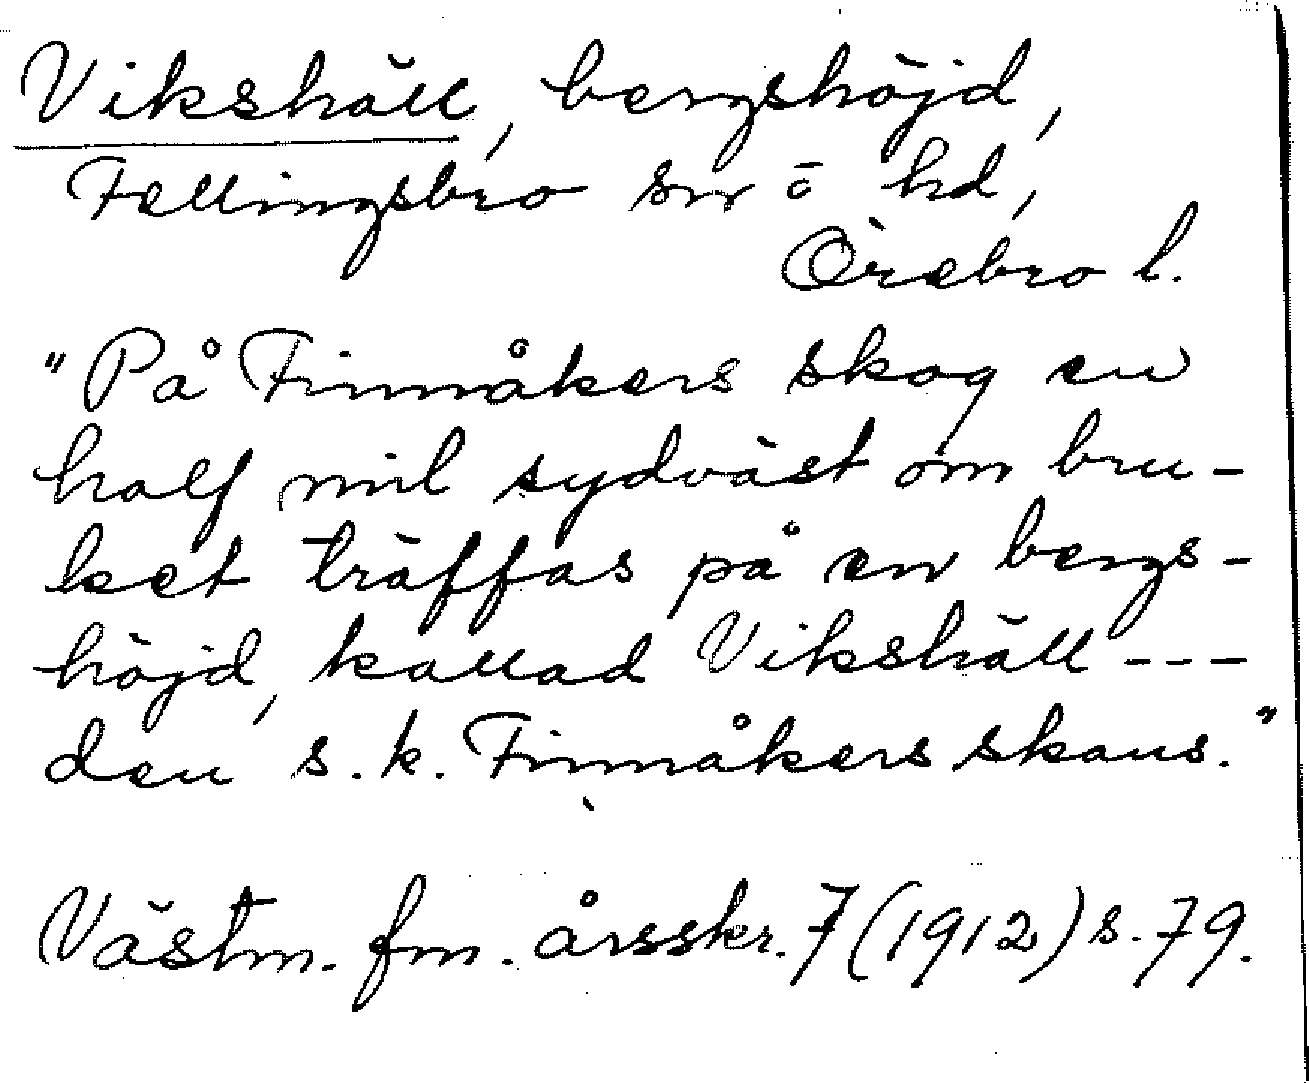 Vikshäll, bergshöjd,
Fellingsbro sn o hd,
Örebro l.
"På Finnåkers skog en
half mil sydväst om bru-
ket träffas på en bergs-
höjd, kallad Vikshäll ---
den s.k. Finnåkers skans."
Västm. fm. årsskr. 7 (1912) s. 79.